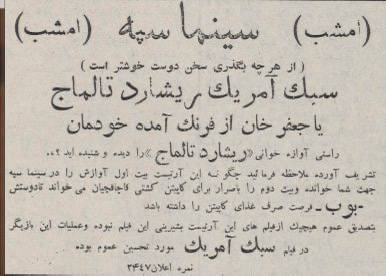 (امشب) سینما سپه (امشب)
(از هر چه بگذری سخن دوست خوشتر است)
سبك آمریك ریشارد تالماج
یا جعفر خان از فرنك آمده خودمان
راستی آوازه خوانی «ریشارد تالماج» را دیده و شنیده اید ؟..
تشریف آورده ملاحظه فرمائید چگونه این آرتیست بیت اول آوازش را در سینما سپه
جهت شما خوانده وبیت دوم را باصرار برای کاپیتن کشتی قاچاقچیان می خواند تادوستش
-بوب- فرصت صرف غذای کاپیتن را داشته باشد
بتصدیق عموم هیچیك ازفیلم های این آرتیست بشیرینی این فیلم نبوده وعملیات این بازیگر
در فیلم سبك آمریك مورد تحسین عموم بوده
نمره اعلان ۲۴۴۷